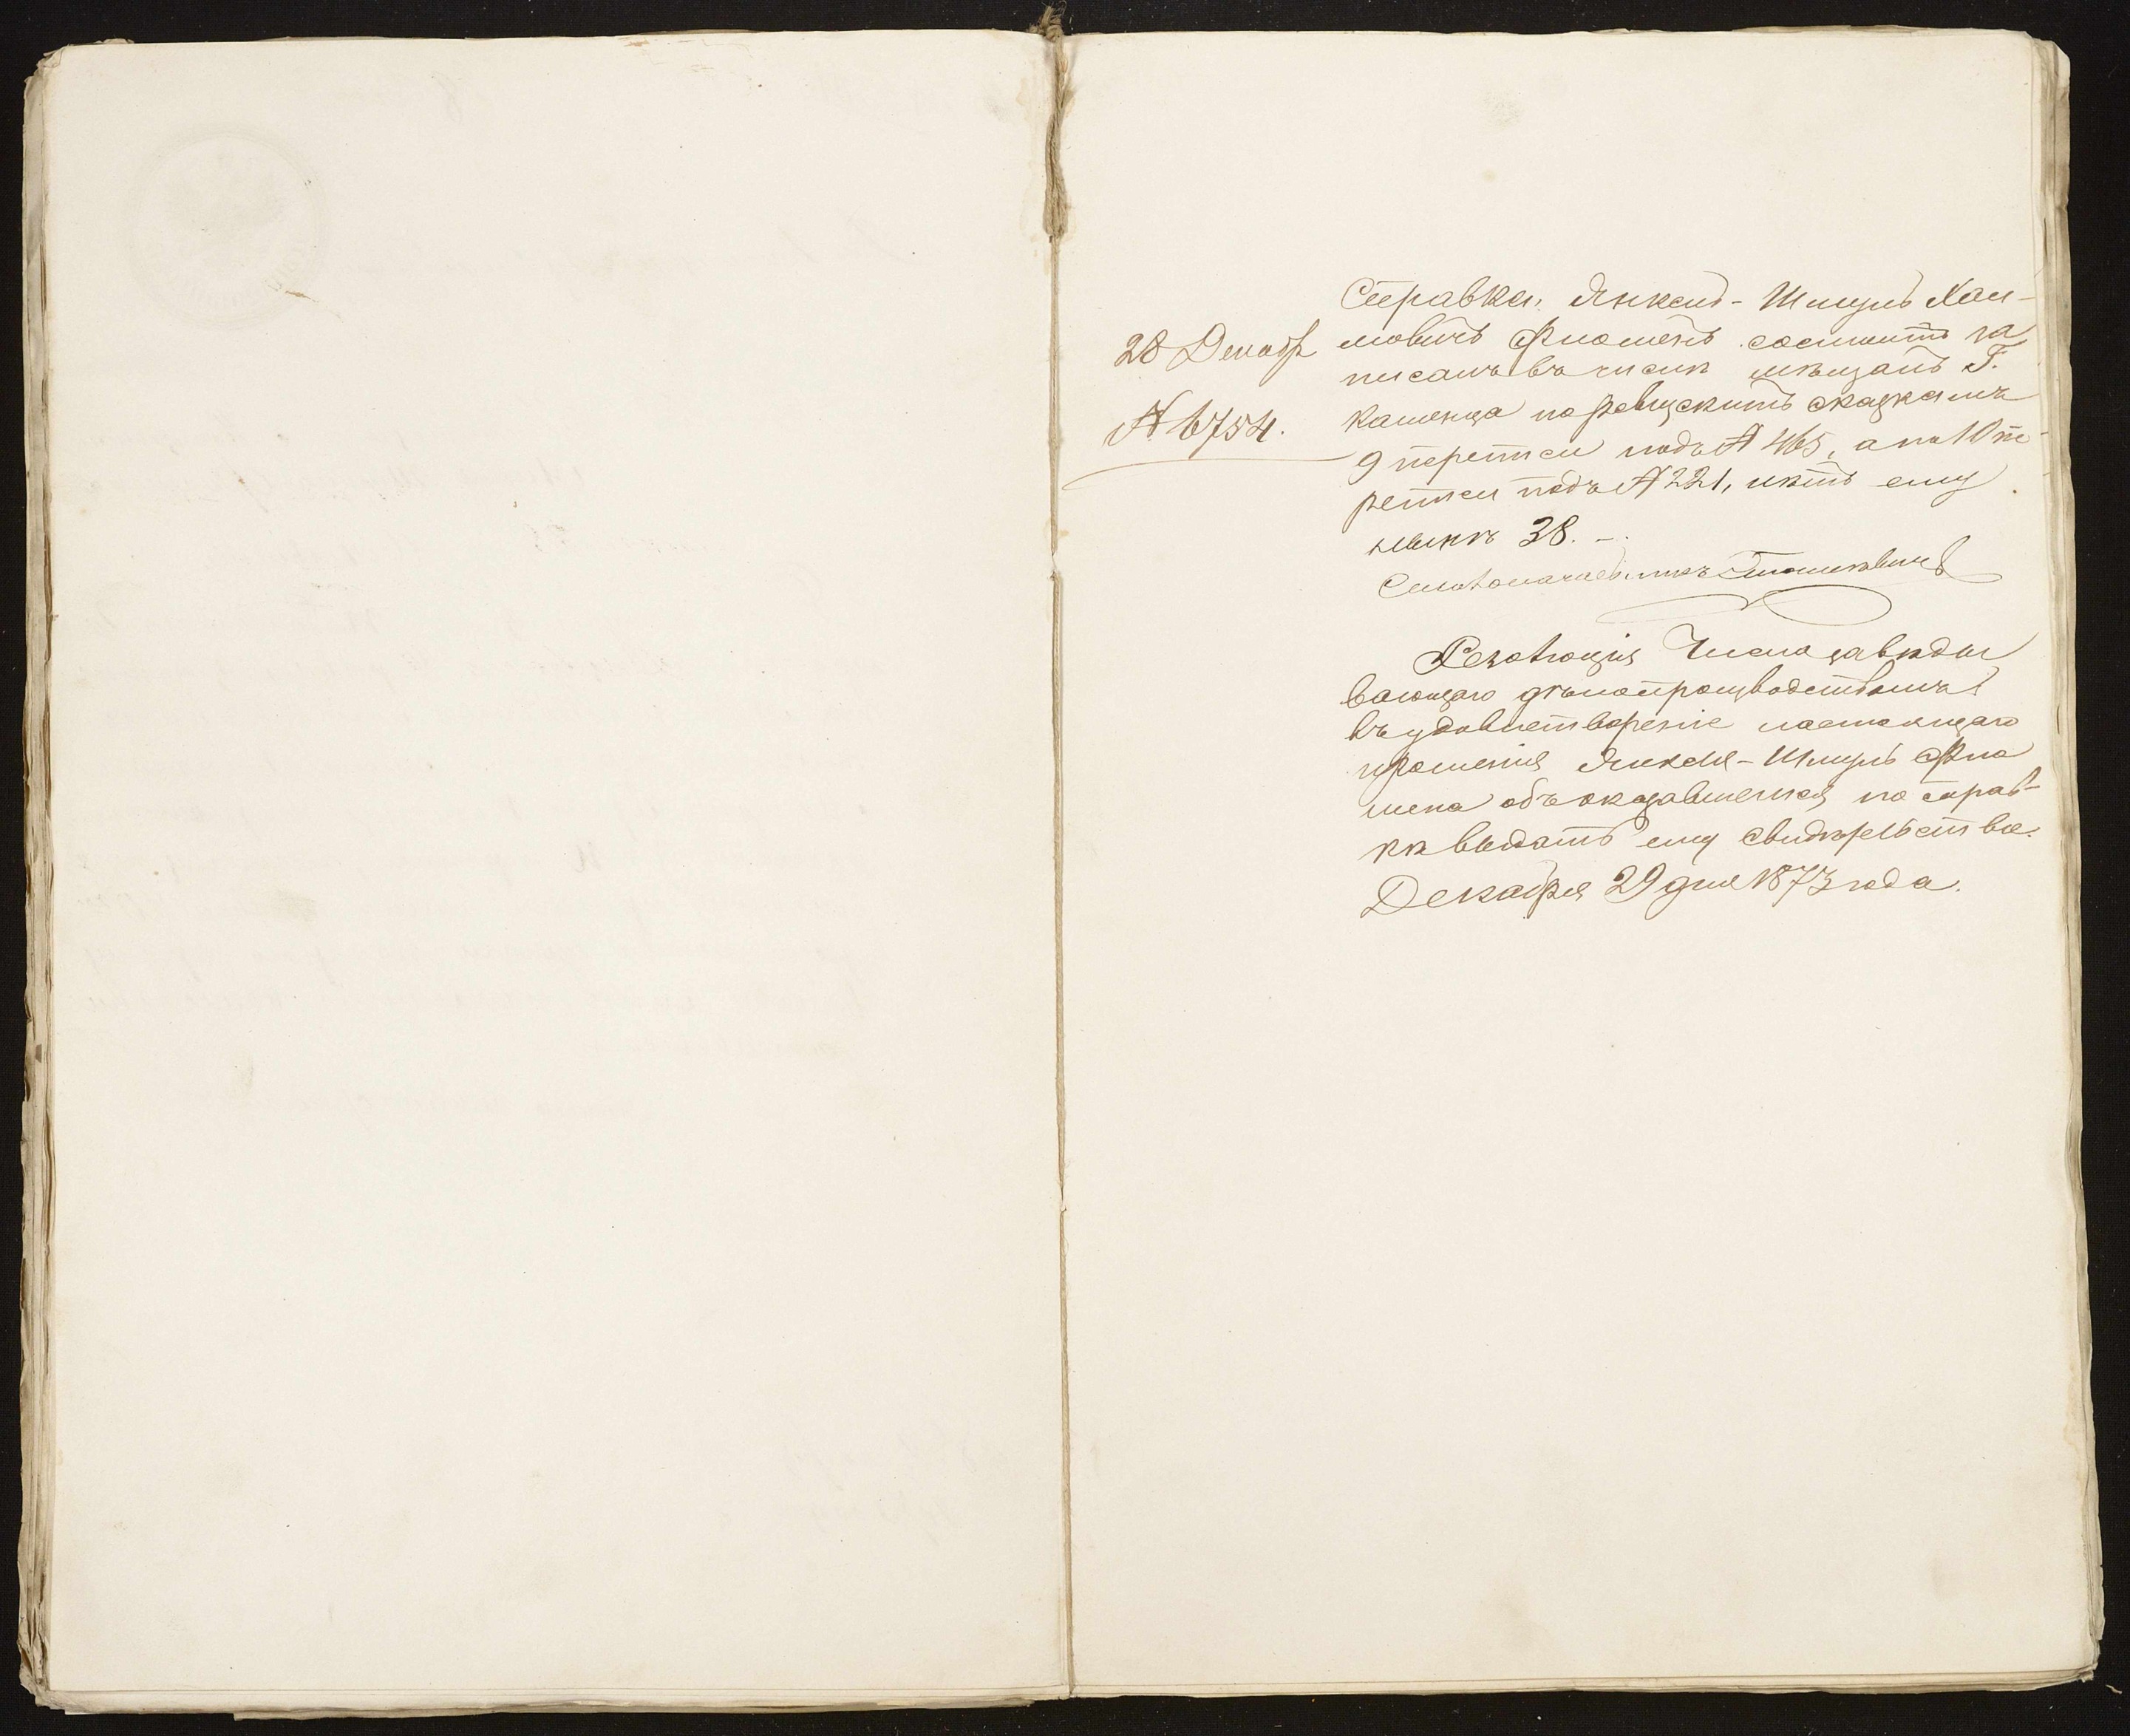 28 Декабр
№ 6754.
Справка, Янкель-Шмуль Хаи-
мовичъ Флошенъ состоитъ за
писанъ въ числѣ мѣщанъ Г.
Каменца по ревизскимъ сказкамъ
9 переписи подъ № 465, а по 10 пе-
реписи подъ № 221, лѣтъ ему
нынѣ 38. –
Столоначальникъ
Резолюція Члена завѣды
вающаго дѣлопроизводствомъ
въ удовлетвореніе настоящаго
прошенія Янкеля-Шмуля Фло
шена объ оказавшемся по справ-
кѣ выдать ему свидѣтельство.
Декабря 29 дня 1873 года.